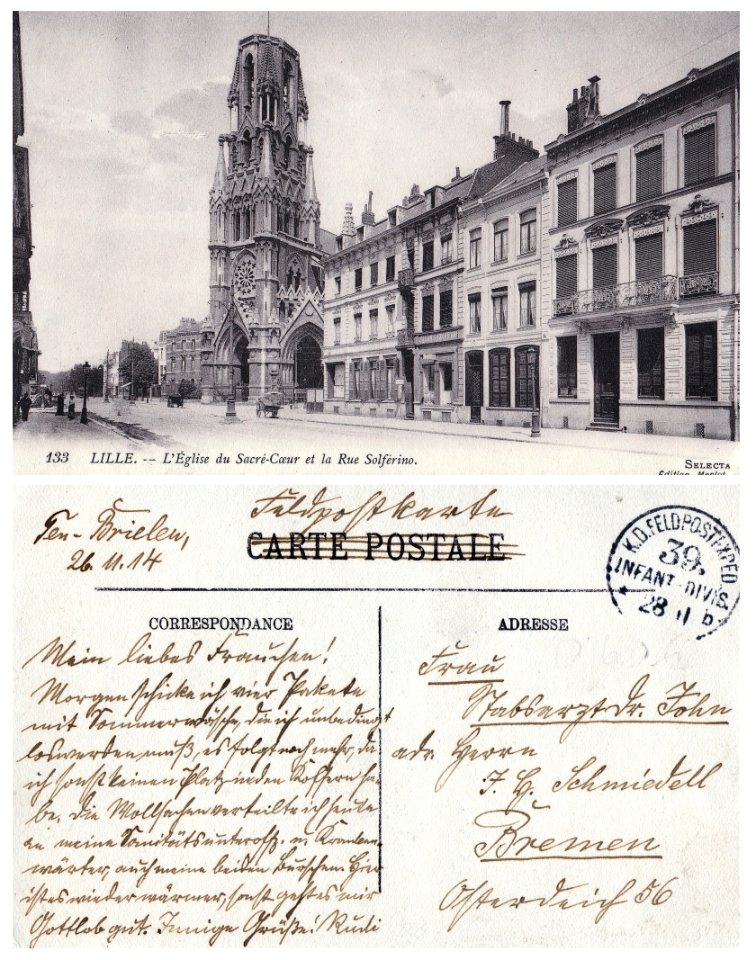 133 LILLE. -- L'Église du Sacré-Cœur et la Rue Solférino.
SELECTA
Ten-Brielen,
26.11.14
Feldpostkarte
CARTE POSTALE
K.D.FELDPOSTEXPED
39.
INFANT.-DIVIS.
28 11 b
CORRESPONDANCE
Mein liebes Frauchen!
Morgen schicke ich vier Pakete
mit Sommerwäsche, die ich unbedingt
loswerden muß, es folgt noch mehr, da
ich sonst keinen Platz in den Koffern ha-
be. Die Wollsachen verteilte ich heute
an meine Sanitätsunteroffz. u. Kranken-
wärter, auch meine beiden Burschen. Hier
ist es wieder wärmer, sonst geht es mir
Gottlob gut. Innige Grüße! Rudi
ADRESSE
Frau
Stabsarzt Dr. John
adr. Herrn
J. H. Schmiedell
Bremen
Osterdeich 56